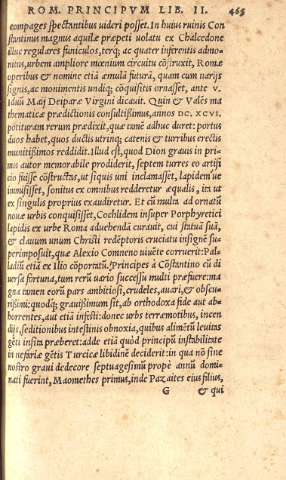 ROM. PRINCIPVM LIB. II. 465
compages spectantibus uideri posset. In huius ruinis Con
stantinus magnus aquilæ præpeti uolatu ex Chalcedone
illuc regulares funiculos, terq; ac quater inferentis admo-
nitus, urbem ampliore mœnium circuitu cõstruxit, Romæ
operibus & nomine etiã æmulã futurã, quam cum uarijs
signis, ac monimentis undiq; cõquisitis ornasset, ante v.
Iduũ Maij Deiparæ Virgini dicauit. Quin & Valẽs ma
thematicæ prædictionis consultissimus, annos DC. XCVI.
potituram rerum prædixit, quæ tunc adhuc duret: portus
duos habet, quos ductis utrinq; catenis & turribus erectis
munitissimos reddidit. Illud est, quod Dion grauis in pri-
mis autor memorabile prodiderit, septem turres eo artifi
cio fuisse cõstructas, ut siquis uni inclamasset, lapidem'ue
immisisset, sonitus ex omnibus redderetur æqualis, ita ut
ex singulis proprius exaudiretur. Et cũ multa ad ornatũ
nouæ urbis conquisisset, Cochlidem insuper Porphyretici
lapidis ex urbe Roma aduehenda curauit, cui statuã suã,
& clauum unum Christi redẽptoris cruciatu insignẽ su-
perimposuit, quæ Alexio Comneno uiuẽte corruerit: Pal-
ladiũ etiã ex Ilio cõportatũ. Principes à Cõstantino cũ di
uersa fortuna, tum rerũ uario successu multi præfuere: ma
gna tamen eorũ pars ambitiosi, crudeles, auari, & obscu-
nissimi: quodq; grauissimum sit, ab orthodoxa fide aut ab-
horrentes, aut etiã infesti: donec urbs terræmotibus, incen
dijs, seditionibus intestinis obnoxia, quibus alimẽtũ leuitas
gẽti insita præberet: adde etiã quòd principũ instabilitate
in nefariæ gẽtis Turcicæ libidinẽ deciderit: in qua nõ sine
nostro graui dedecore septuagesimũ propè annũ domi-
nati fuerint, Maomethes primus, inde Pazaites eius filius,
G & qui